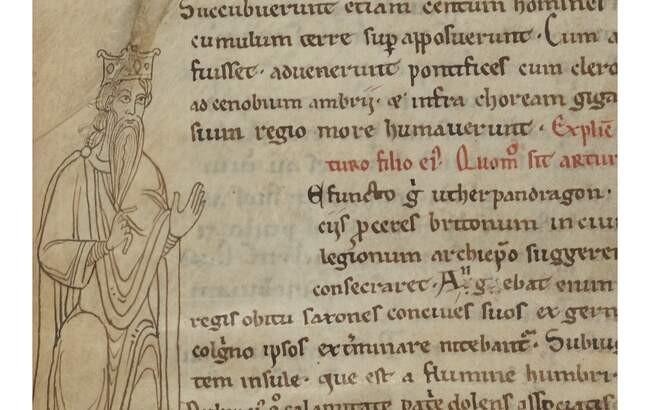 Succubuerunt etiam centum homines
cumulum terre sup apposuerunt. Cum a
fuisset. advenerunt pontifices cum clero
ad cenobium ambrij. & infra choream giga
sium regio more humaverunt. Explic
turo filio ei. Quom sit artur
efuncto g utherpandragon.
cijs pceres britonum in ciui
legionum archiepo suggeren
consecraret. Angebat enim
regis obitu saxones concives suos ex germ
colgno ipsos exterminare nitebant. Subiug
tem insule. que est a flumine humbri
calamitate patie dolens associatis